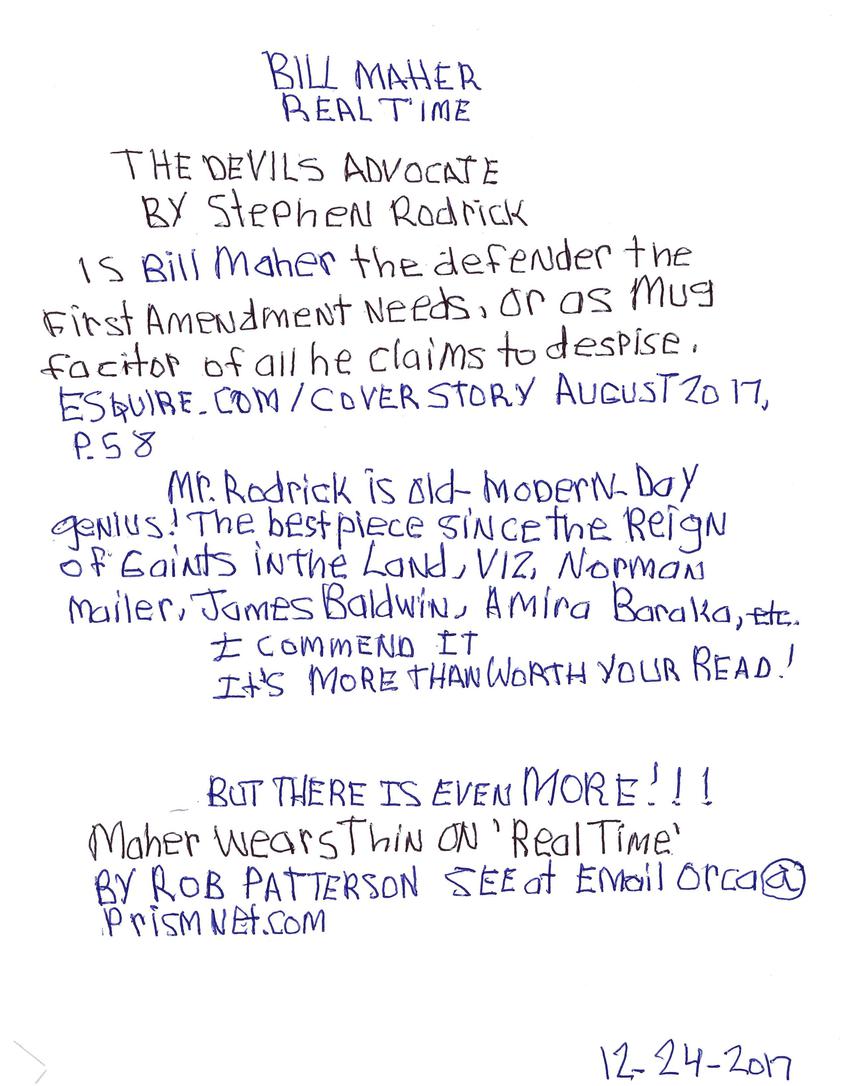 BILL MAHER
REAL TIME
THE DEVILS ADVOCATE
BY Stephen Rodrick
IS Bill Maher the defender the
First Amendment Needs, or as Mug
facitor of all he claims to despise.
ESQUIRE.COM/COVER STORY AUGUST 2017,
P. 58
Mr. Rodrick is old-MODERN-Day
geNIUS! The best piece SINCE the Reign
of Gaints in the Land, VIZ, Norman
Mailer, James Baldwin, Amira Baraka, etc.
I COMMEND IT
It's MORE THAN WORTH YOUR READ!
BUT THERE IS EVEN MORE!!!
Maher WearsThin ON 'Real Time'
BY ROB PATTERSON SEE at EMail Orca@
PrismNEt.COM
12-24-2017